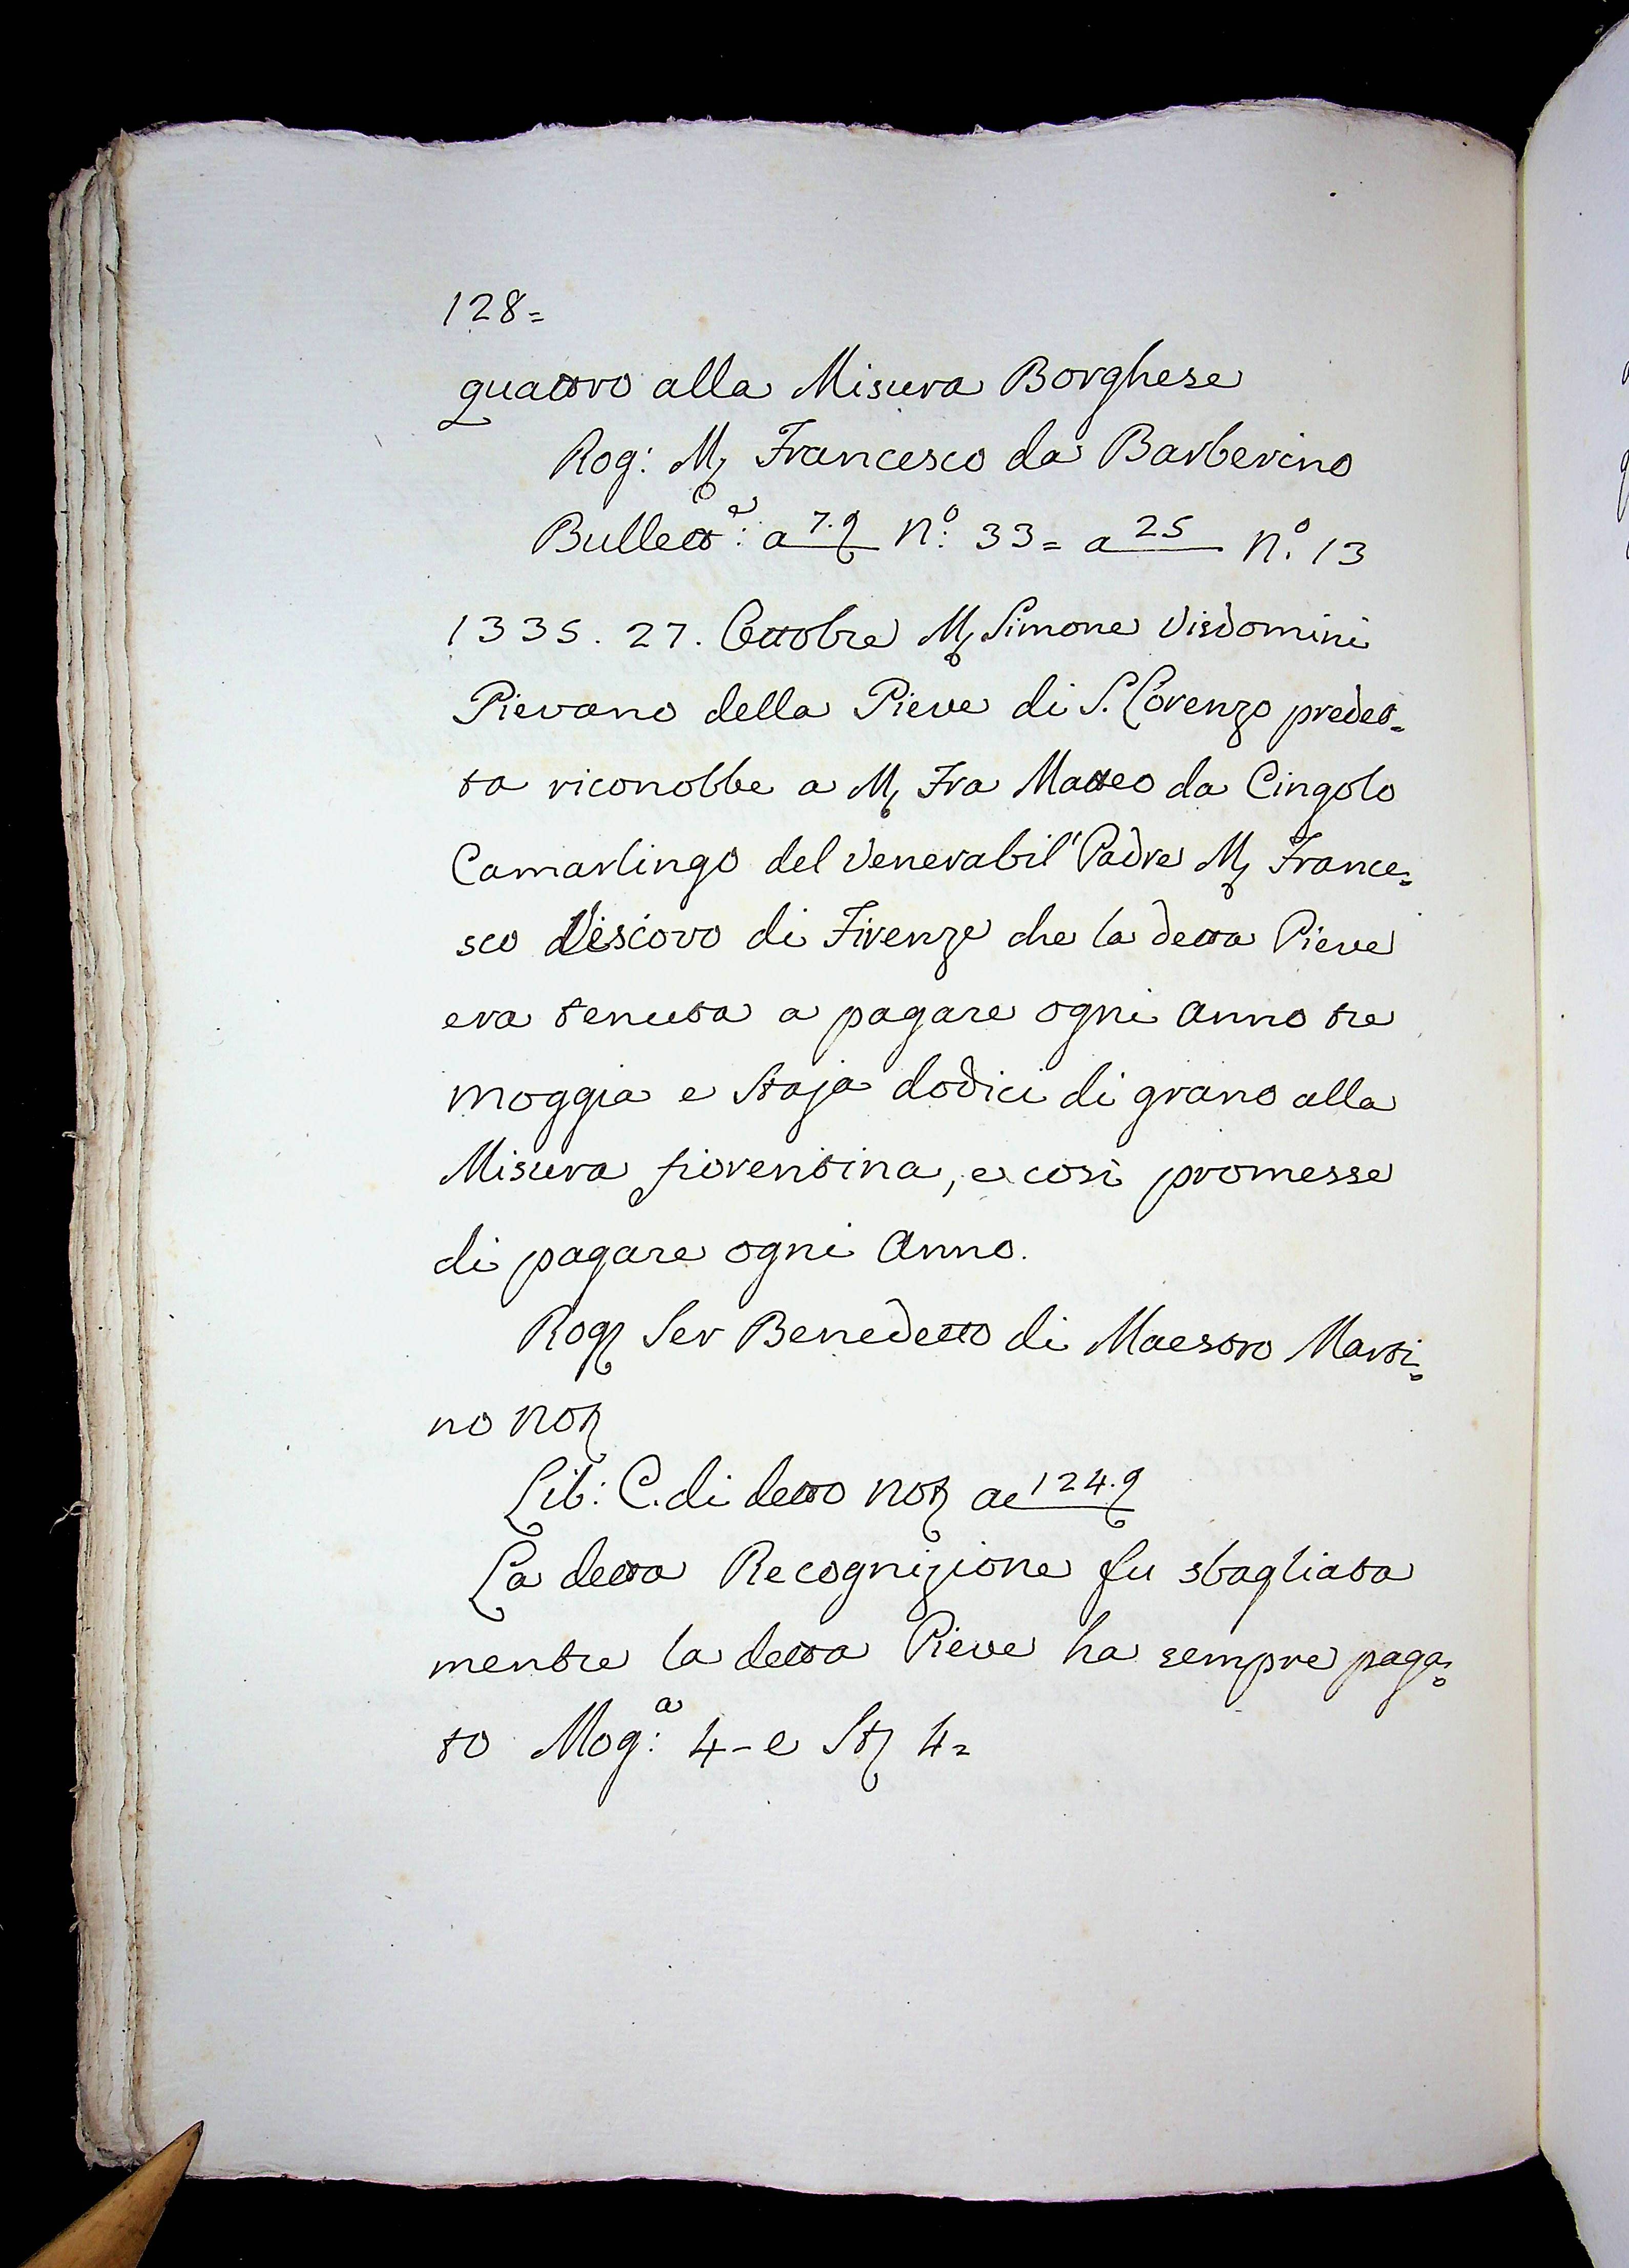 128=
quattro alla Misura Borghese
Rog: M. Francesco da Barberino
Bullett.e: a 7.9 n.o 33= a 25 n.o 13
1335. 27. Ottobre M. Simone Visdomini
Pievano della Pieve di S. Lorenzo predet=
ta riconobbe a M. Fra Matteo da Cingolo
Camarlingo del Venerabil' Padre M. France=
sco Vescovo di Firenze che la detta Pieve
era tenuta a pagare ogni anno tre
moggia e Staja dodici di grano alla
Misura fiorentina, e così promesse
di pagare ogni Anno.
Rog. Ser Benedetto di Maestro Marti=
no Not.
Lib: C. di detto Not. ac 124.9
La detta Recognizione fu sbagliata
mentre la detta Pieve ha sempre paga=
to Mog:a 4- e St. 4=